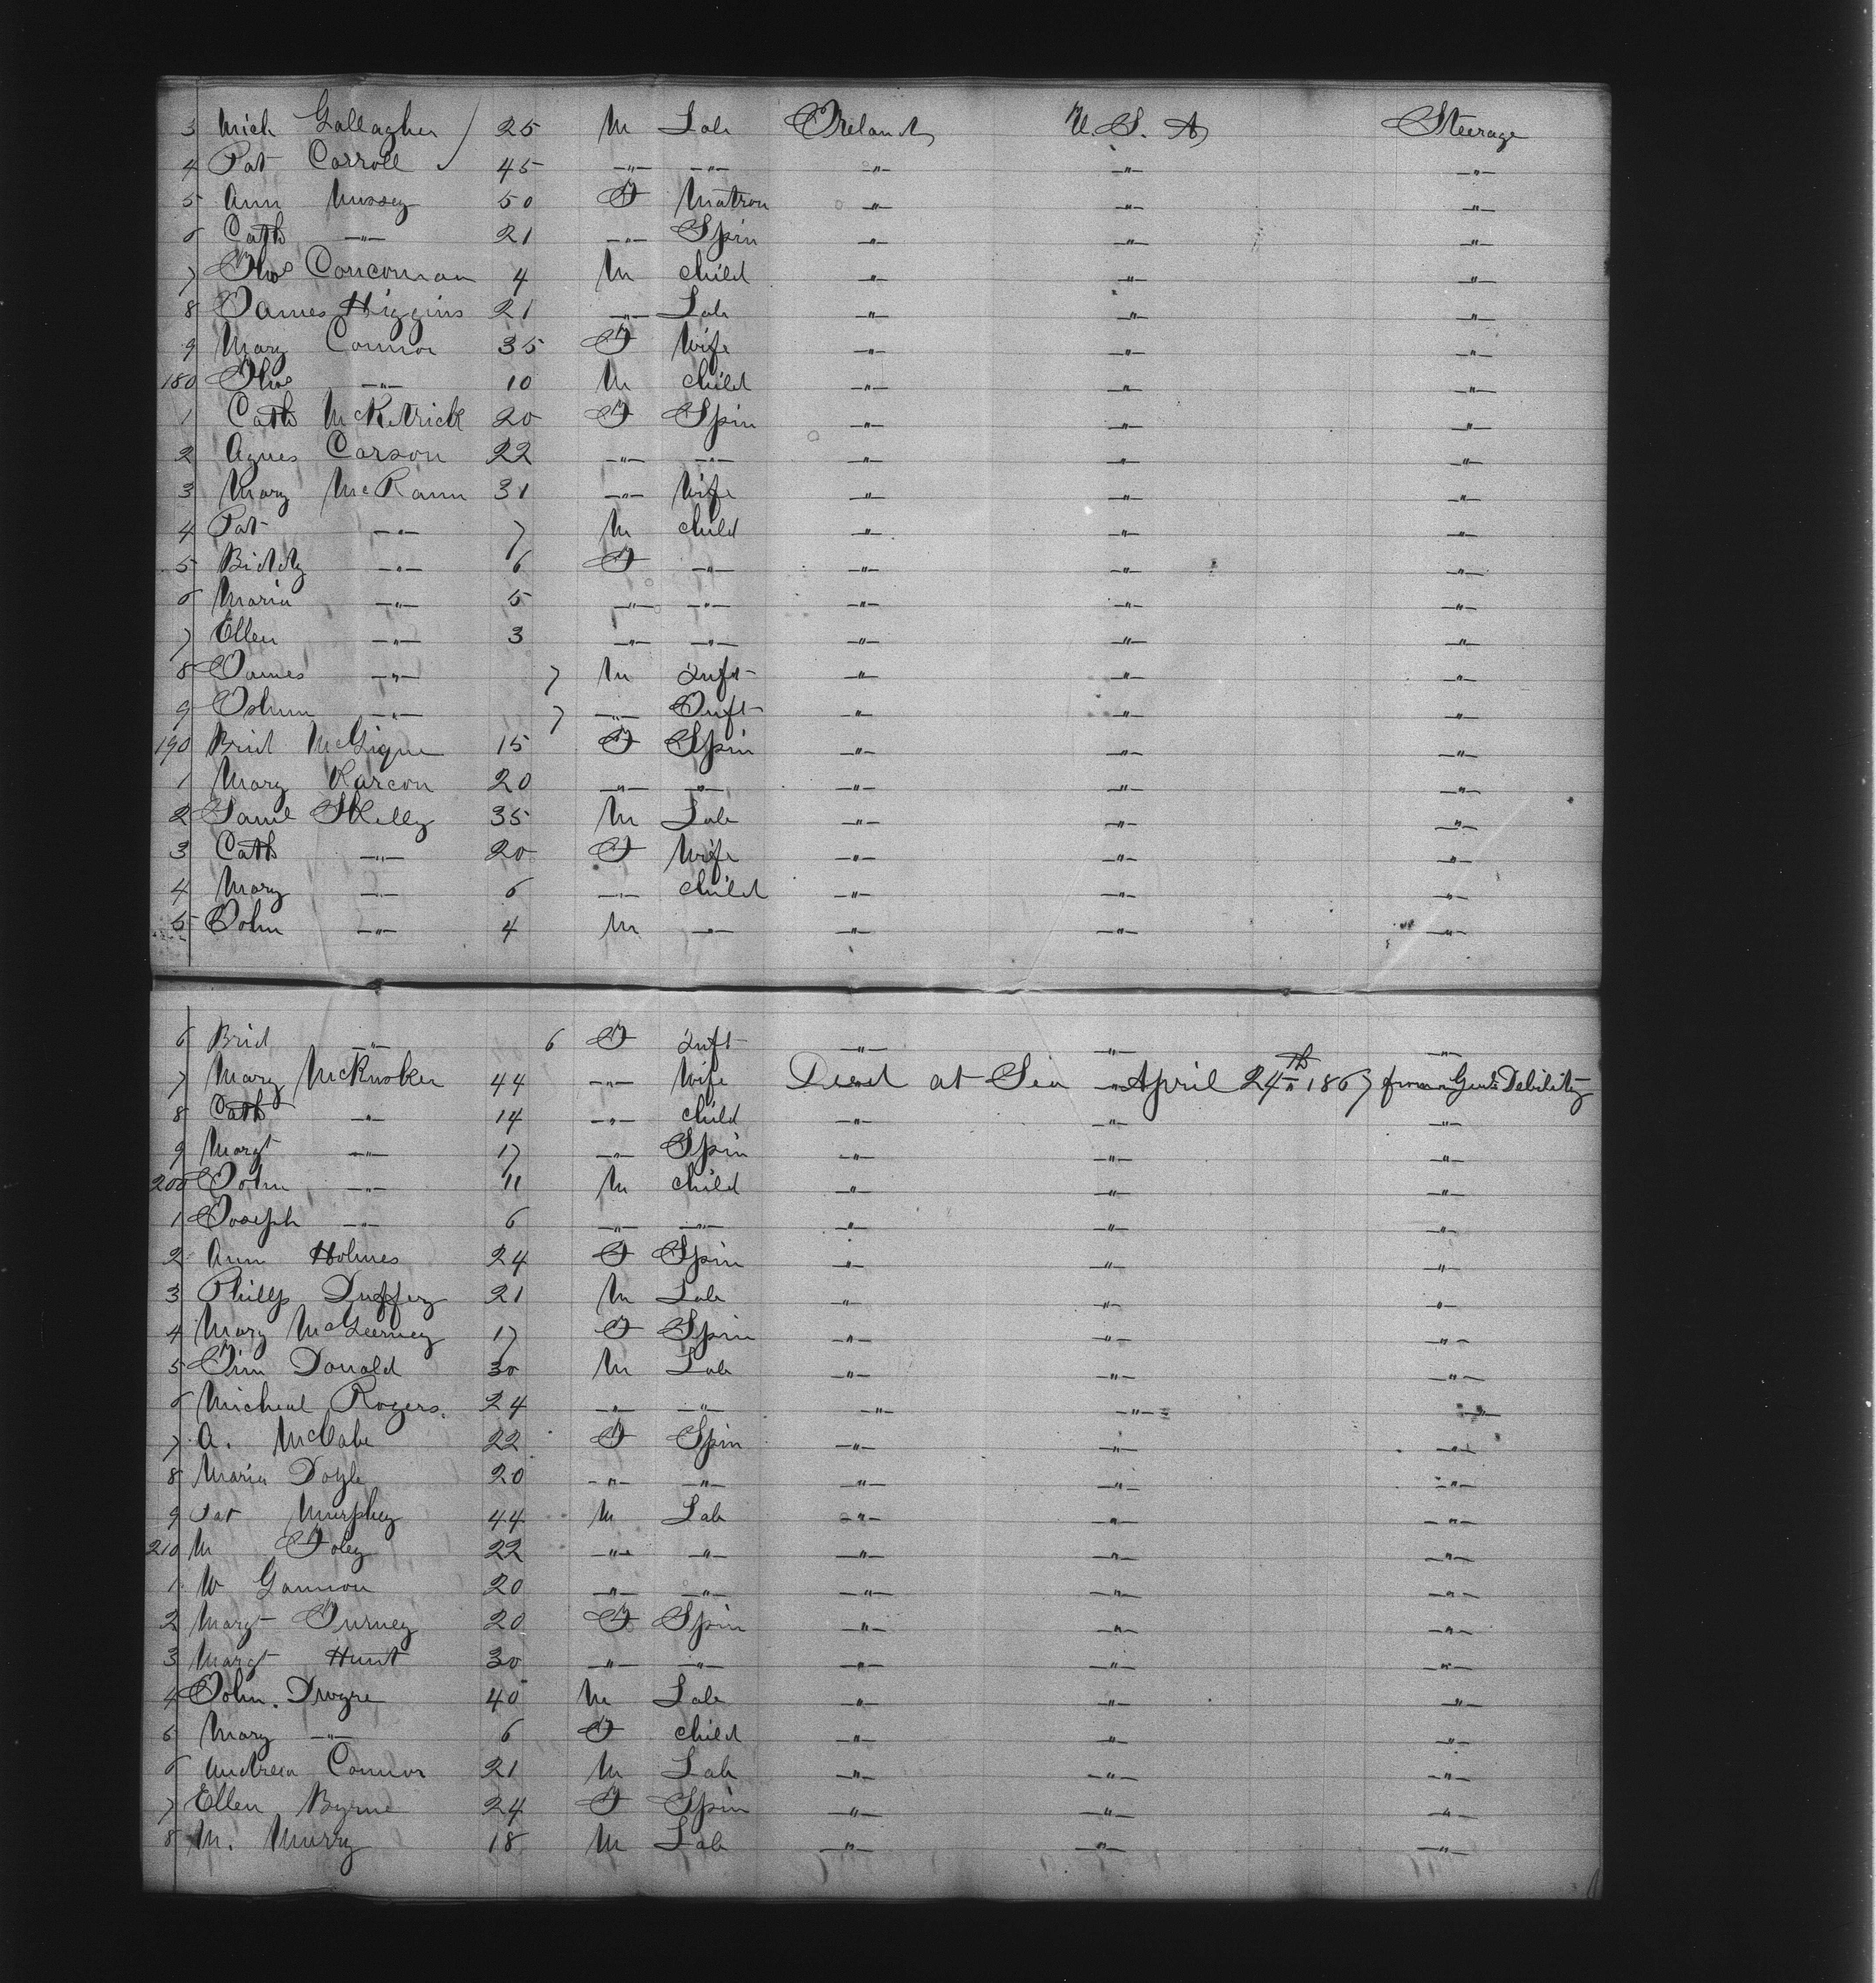 3 Mich Gallagher 25 M Lab Ireland U.S.A Steerage
4 Pat Carroll 45 —"— —"— —"— —"— —"—
5 Ann 50 F Matron —"— —"— —"—
6 Cath —"— 21 —"— Spin —"— —"— —"—
7 Thos Concornan 4 M child —"— —"— —"—
8 James Higgins 21 —"— Lab —"— —"— —"—
9 Mary Connor 35 F Wife —"— —"— —"—
180 Thos —"— 10 M child —"— —"— —"—
1 Cath McKitrick 20 F Spin —"— —"— —"—
2 Agnes Carson 22 —"— —"— —"— —"— —"—
3 Mary McKann 31 —"— Wife —"— —"— —"—
4 Pat —"— 7 M child —"— —"— —"—
5 Biddy —"— 6 F —"— —"— —"— —"—
6 Maria —"— 5 —"— —"— —"— —"— —"—
7 Ellen —"— 3 —"— —"— —"— —"— —"—
8 James —"— 7 M Inft —"— —"— —"—
9 —"— 7 —"— Inft —"— —"— —"—
190 Brid McGigue 15 F Spin —"— —"— —"—
1 Mary Karcon 20 —"— —"— —"— —"— —"—
2 Saml Kelly 35 M Lab —"— —"— —"—
3 Cath —"— 20 F Wife —"— —"— —"—
4 Mary —"— 6 —"— child —"— —"— —"—
5 John —"— 4 M —"— —"— —"— —"—
6 Brid —"— 6 F Inft —"— —"— —"—
7 Mary McKusker 44 —"— Wife Died at Sea —"— April 24th 1867 from Genl Debility
8 Cath —"— 14 —"— child —"— —"— —"—
9 Margt —"— 17 —"— Spin —"— —"— —"—
200 John —"— 11 M child —"— —"— —"—
1 Joseph —"— 6 —"— —"— —"— —"— —"—
2 Ann Holmes 24 F Spin —"— —"— —"—
3 Phillp Duffey 21 M Lab —"— —"— —"—
4 Mary McGeerney 17 F Spin —"— —"— —"—
5 Tim Donald 30 M Lab —"— —"— —"—
6 Micheal Rogers 24 —"— —"— —"— —"— —"—
7 A. McCabe 22 F Spin —"— —"— —"—
8 Maria Doyle 20 —"— —"— —"— —"— —"—
9 Pat Murphey 44 M Lab —"— —"— —"—
210 M Foley 22 —"— —"— —"— —"— —"—
1 W Gannon 20 —"— —"— —"— —"— —"—
2 Margt Furney 20 F Spin —"— —"— —"—
3 Margt Hunt 30 —"— —"— —"— —"— —"—
4 John. Dwyre 40 M Lab —"— —"— —"—
5 Mary —"— 6 F child —"— —"— —"—
6 Andrew Connor 21 M Lab —"— —"— —"—
7 Ellen Byrne 24 F Spin —"— —"— —"—
8 M. Murry 18 M Lab —"— —"— —"—